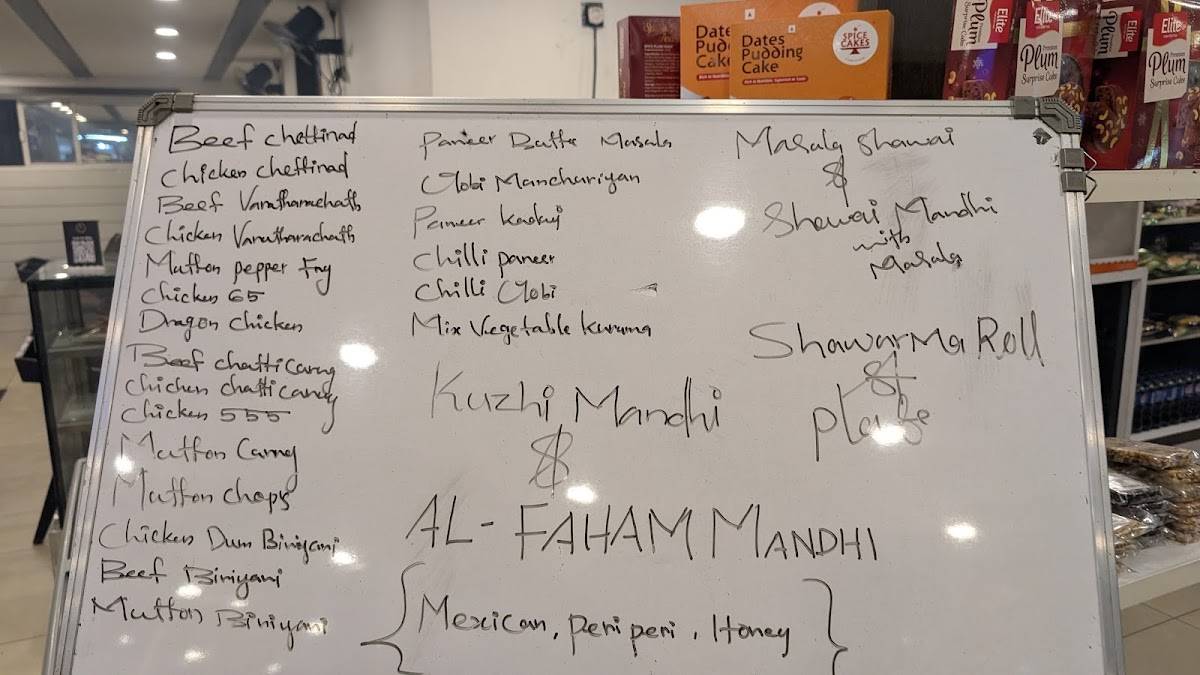 Beef chettinad
Chicken chettinad
Beef Varutharachath
Chicken Varutharachath
Mutton pepper Fry
Chicken 65
Dragon Chicken
Beef chatti Carry
Chicken chatti Carry
Chicken 555
Mutton Carry
Mutton chops
Chicken Dum Biriyani
Beef Biriyani
Mutton Biriyani
Paneer Butter Masala
Gobi Manchariyan
Paneer Kadayi
Chilli paneer
Chilli Gobi
Mix Vegetable Kuruma
Kuzhi Mandhi
&
AL-FAHAM MANDHI
{Mexican, Peri peri, Honey}
Masala Shawai
&
Shawai Mandhi
with
Masala
Shawarma Roll
&
plate
Dates
Pudding
Cake
SPICE
CAKES
Dates
Pud
Cak
Elite
Plum
Surprise Cake
Elite
Premium
Plum
Surprise Cake
Elite
Elite
Premium
Plum
Surprise Cake